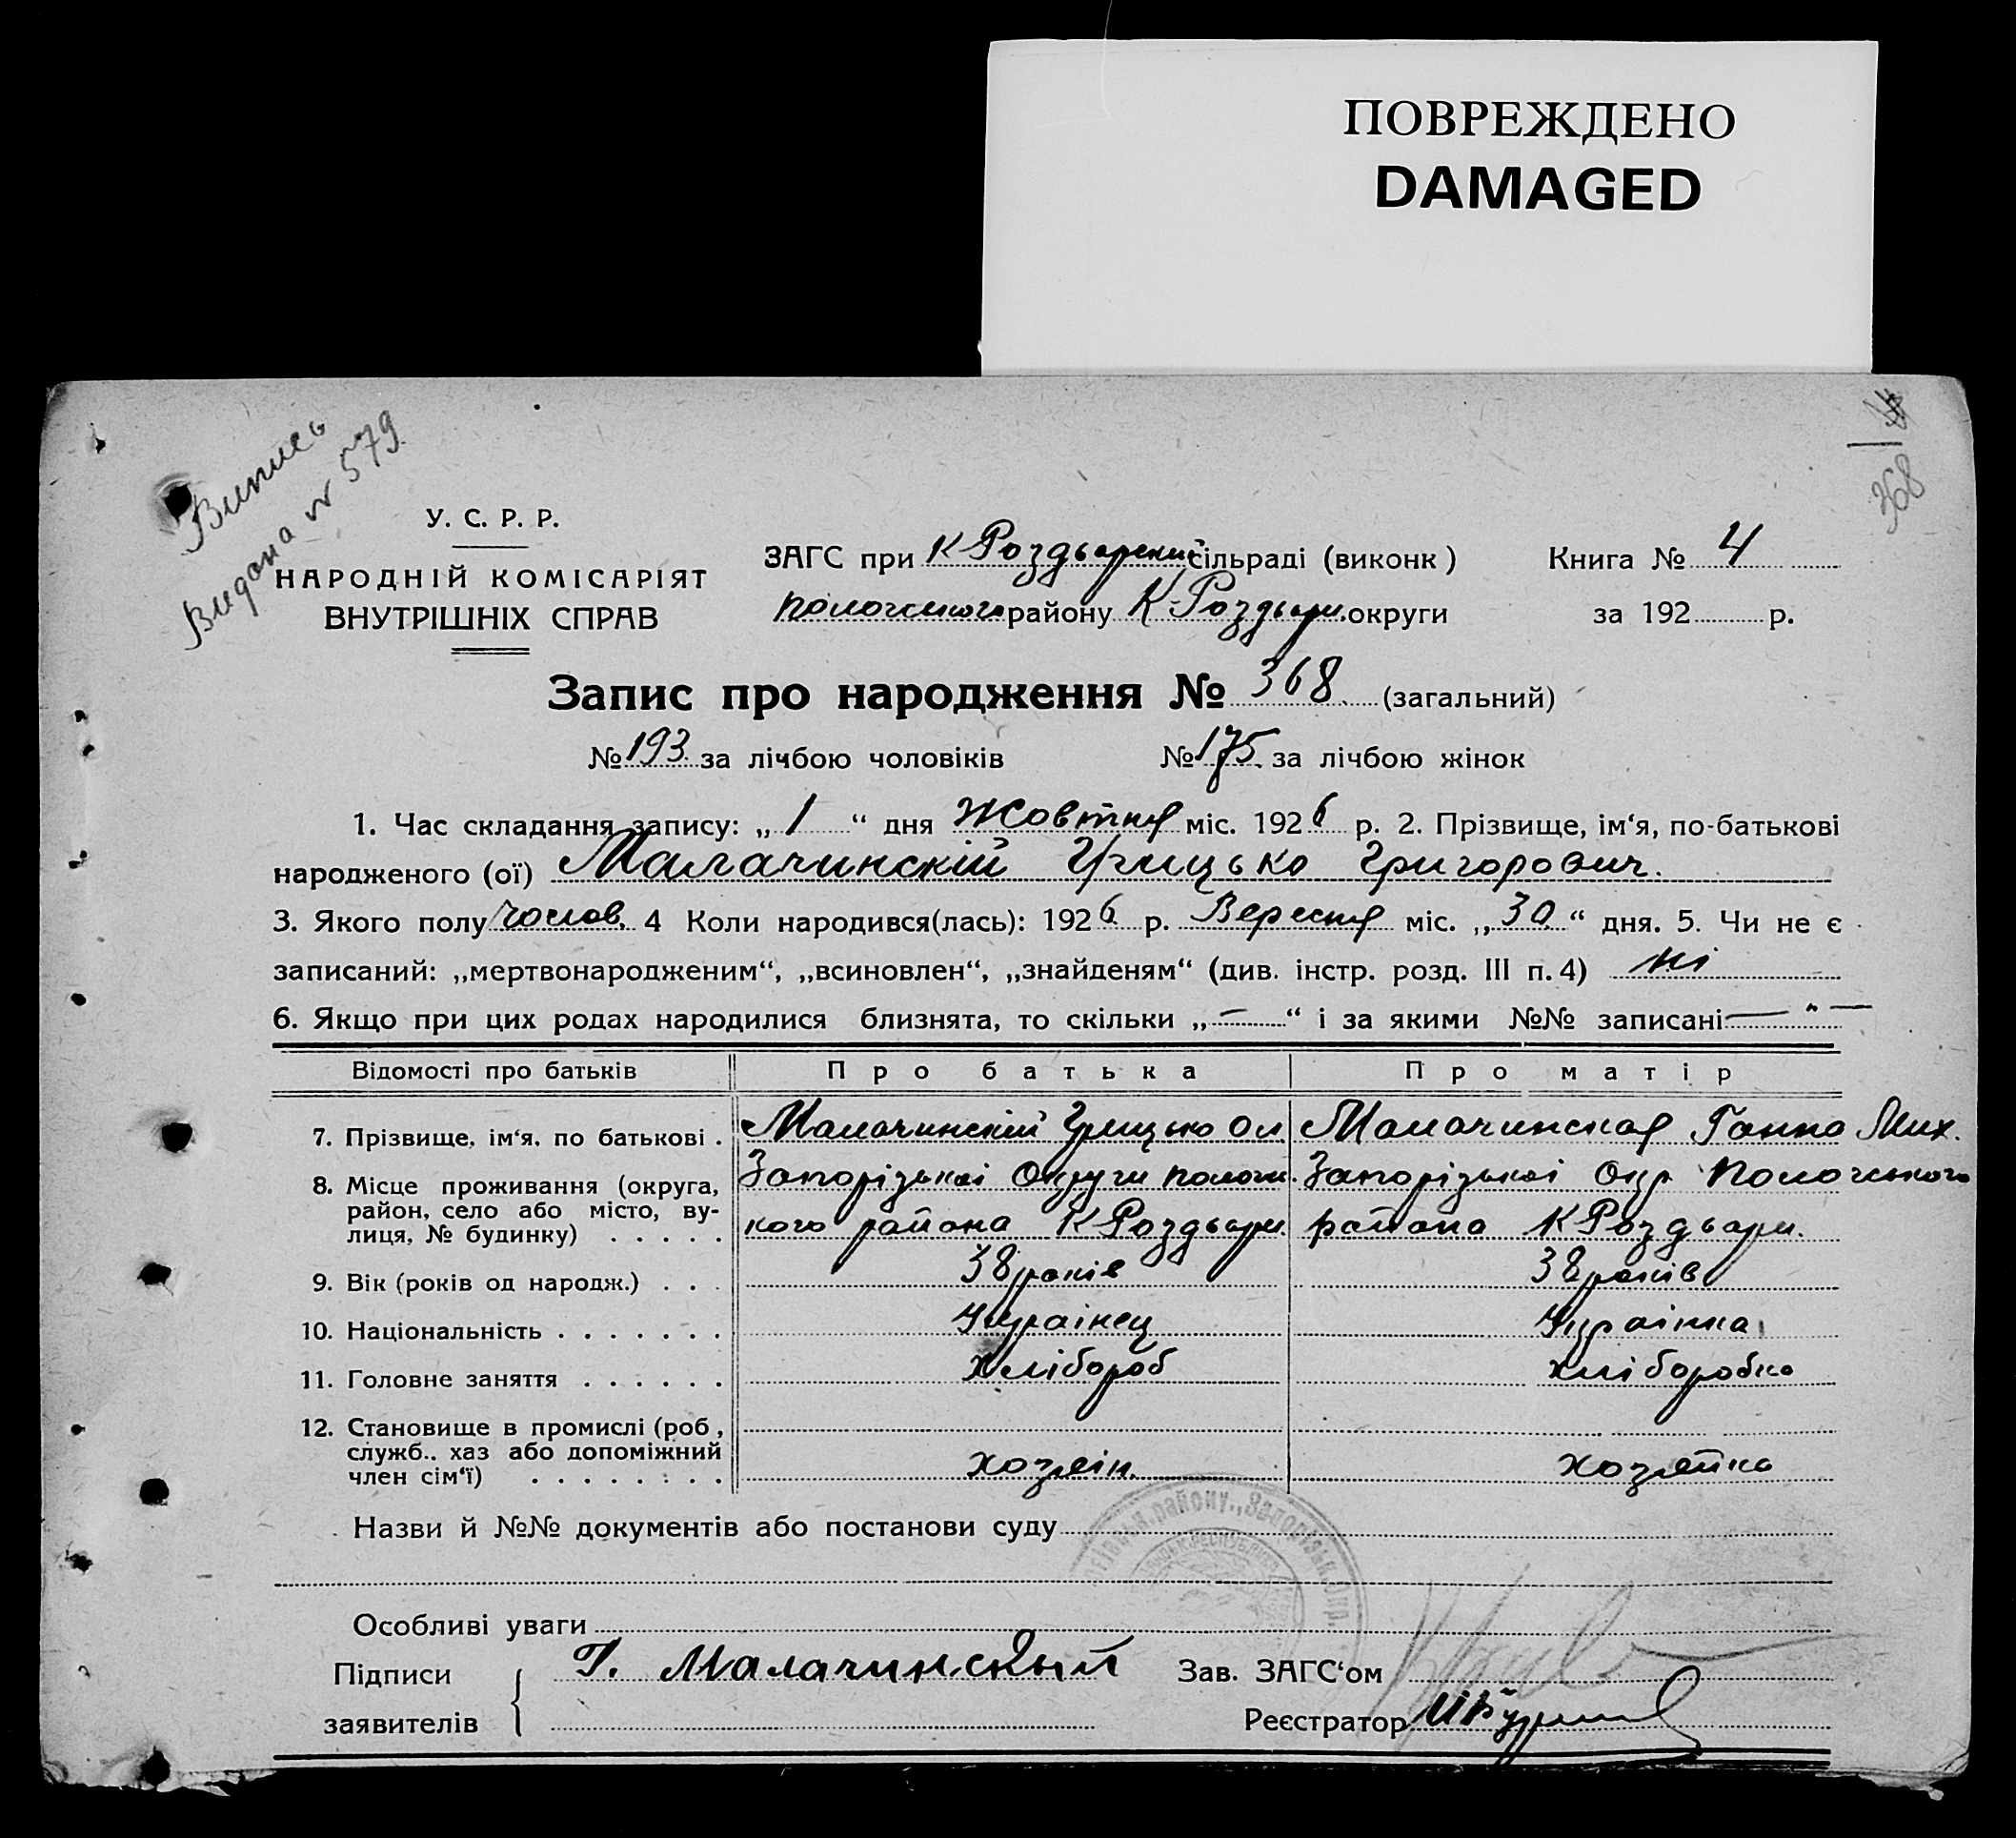 ПОВРЕЖДЕНО
DAMAGED
Випись
Видана № 579
368
У. С. Р. Р.
НАРОДНІЙ КОМІСАРІЯТ
ВНУТРІШНІХ СПРАВ
ЗАГС при К Роздорский сільраді (виконк) Книга № 4
пологського району К-Роздори. округи за 192 р.
Запис про народження № 368. (загальний)
№ 193. за лічбою чоловіків № 175. за лічбою жінок
1. Час складання запису: „ 1 “ дня Жовтня міс. 1926 р. 2. Прізвище, ім‘я, по-батькові
народженого (ої) Малачинскій Грицько Григорович.
3. Якого полу чолов. 4 Коли народився(лась): 1926 р. Вересня міс. „ 30 “ дня. 5. Чи не є
записаний: „мертвонародженим“, „всиновлен“, „знайденям“ (див. інстр. розд. III п. 4) ні
6. Якщо при цих родах народилися близнята, то скільки „ — “ і за якими №№ записані — " —
Відомості про батьків Про батька Про матір
7. Прізвище, ім‘я, по батькові . Малачинскій Грицько Ол Малачинская Ганна Мих.
8. Місце проживання (округа, Запорізькоі Округи пологс. Запорізькоі Окр. Пологського
район, село або місто, ву-
лиця, № будинку) . . . . . кого района К Роздори. района К Роздори.
9. Вік (років од народж.) . . . 38 років 38 років
10. Національність . . . . . . . Украінец Украінка
11. Головне заняття . . . . . . хлібороб хліборобка
12. Становище в промислі (роб ,
служб.. хаз або допоміжний
член сім‘ї) . . . . . . . . хозяін. хозяйка
Назви й №№ документів або постанови суду
району „Запорізьк. Окр.
Особливі уваги
Підписи Г. Малачинский Зав. ЗАГС‘ом
заявителів Реєстратор